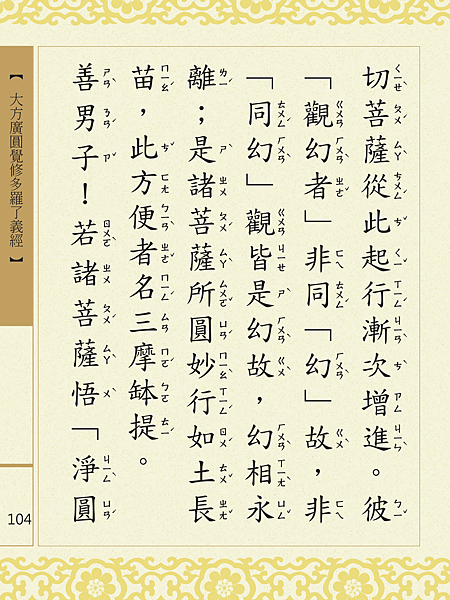 切菩薩從此起行漸次增進。彼
「觀幻者」非同「幻」故，非
「同幻」觀皆是幻故，幻相永
離；是諸菩薩所圓妙行如土長
苗，此方便者名三摩缽提。
善男子！若諸菩薩悟「淨圓
【大方廣圓覺修多羅了義經】
104